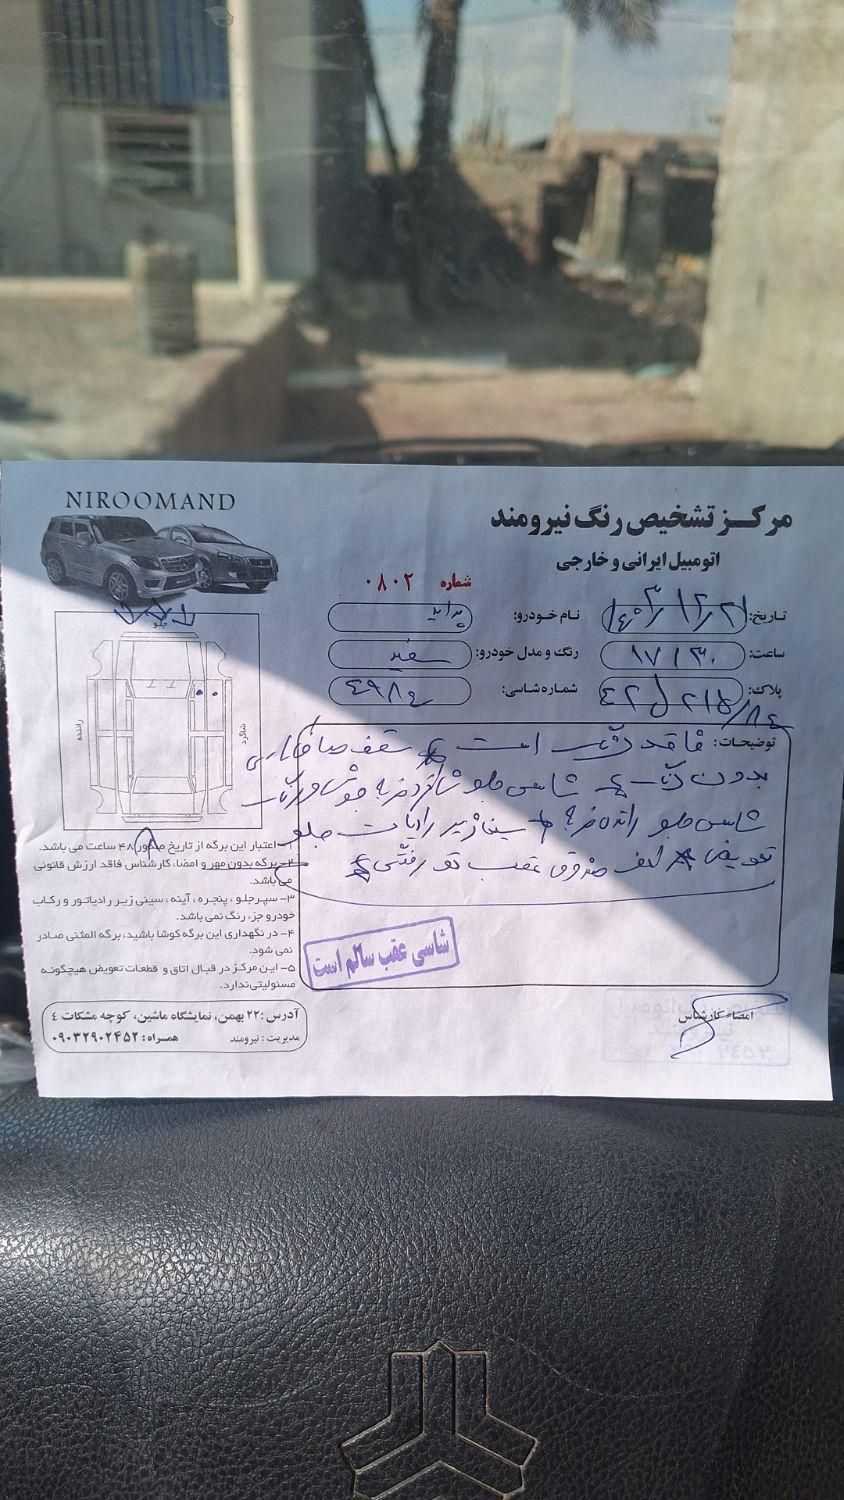 NIROOMAND
مرکز تشخیص رنگ نیرومند
اتومبیل ایرانی و خارجی
شماره ۰۸۰۲
تاریخ: ۱۴۰۳/۱۲/۲۱
نام خودرو: پراید
ساعت: ۱۷/۳۰
رنگ و مدل خودرو: سفید
پلاک:
شماره شاسی:
جلو
راننده
شاگرد
توضیحات: فاقد رنگ است سقف صافکاری
بدون رنگ شاسی جلو شاگرد ضربه جوش و رنگ
شاسی جلو راننده ضربه سینی زیر رادیات جلو
تعویض کف صندوق عقب تو رفتگی
شاسی عقب سالم است
۱- اعتبار این برگه از تاریخ صدور ۴۸ ساعت می باشد.
۲- برگه بدون مهر و امضاء کارشناس فاقد ارزش قانونی
می باشد.
۳- سپر جلو، پنجره، آینه، سینی زیر رادیاتور و رکاب
خودرو جزء رنگ نمی باشد.
۴- در نگهداری این برگه کوشا باشید، برگه المثنی صادر
نمی شود.
۵- این مرکز در قبال اتاق و قطعات تعویض هیچگونه
مسئولیتی ندارد.
آدرس: ۲۲ بهمن، نمایشگاه ماشین، کوچه مشکات ٤
مدیریت: نیرومند
همراه: ۰۹۰۳۲۹۰۲۴۵۲
امضاء کارشناس